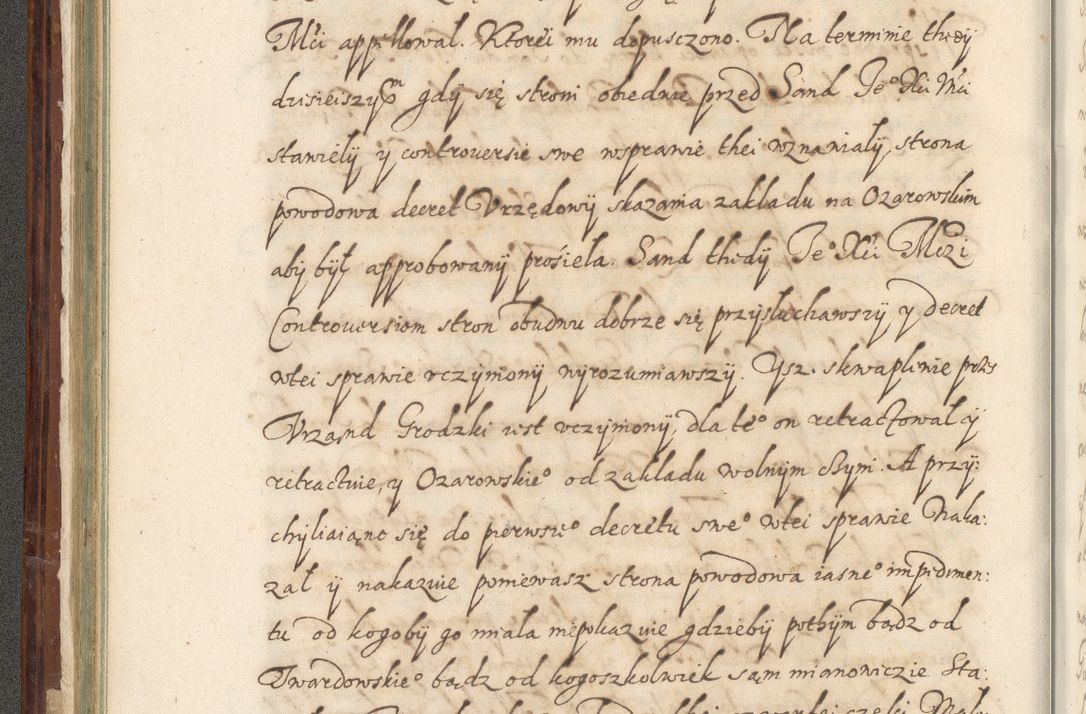 Mći appellował. Ktorei mu dopusczono. Na terminie thedy
dzisieiszym gdy się stroni obiedwie przed Sąnd Je° Xći Mći
stawiely y controuersie swe wsprawie thei wznawialy, strona
powodowa decret Vrzędowij skazania zakladu na Ozarowskim
aby był approbowanij prosiela. Sąnd thedij Je° Xći Mczi
Controuersiom stron obudwu dobrze się przysluchawszij y decret
wtei sprawie vczijmionij wyrozumiawszij. Ysz. skwaplinie przes
Vrząnd Grodzki iest vczijmionij, dla te° on retractowal ij
retractuie, y Ozarowskie° od zakladu wolnijm czyni. A przij:
chijliaiąnc się do pierwsze° decretu swe° wtei sprawie Naka:
zal ij nakazuie poniewasz strona powodowa iasne° impedimen:
tu od kogobij go miala niepokazuie gdziebij pothijm bądz od
Twardowskie° bądz od kogoszkolwiek sąm mianowiczie Sta: